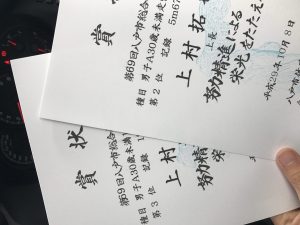 賞
第69回八戸市総合
種目 男子A30歳未満走
第2位 記録 5m67
上村拓
努力精進による
栄光をたたえ
平成29年10月8日
八戸市
賞状
第69回八戸市総合
種目 男子A30歳未満
第3位 記録
上村
努力精
栄